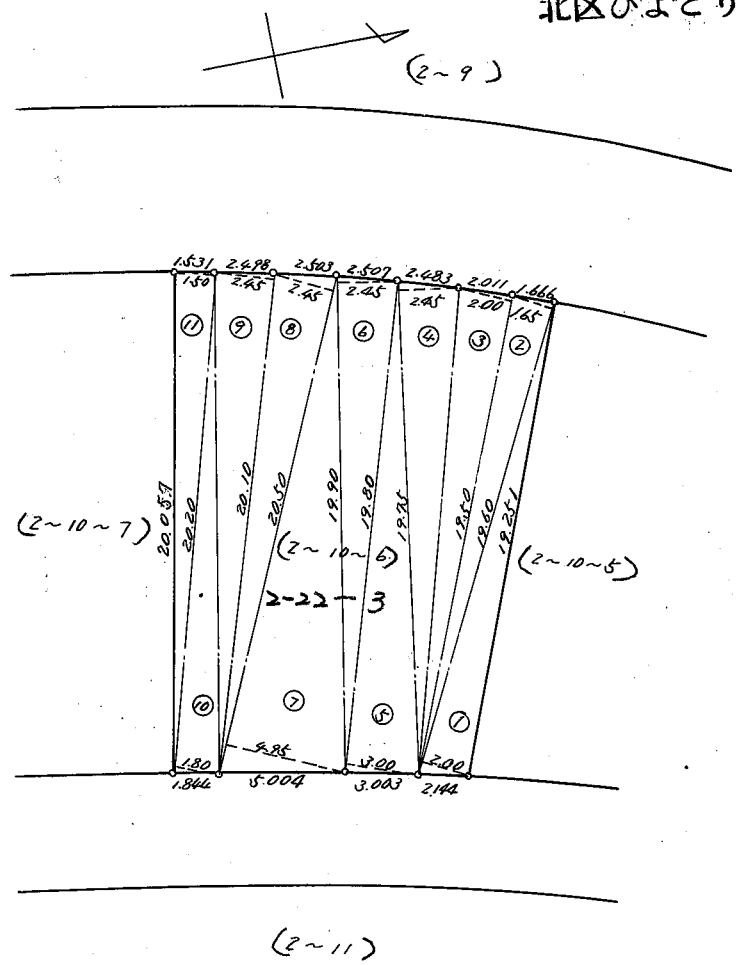 北区ひよどり
(2~9)
1.531 2.498 2.503 2.507 2.483 2.011 1.666
1.50 2.45 2.45 2.45 2.45 2.00 1.65
⑪ ⑨ ⑧ ⑥ ④ ③ ②
(2~10~7)
20.057
20.20
20.10
20.50
19.90
19.80
19.75
19.50
19.60
19.251
(2~10~6)
(2~10~5)
2-22-3
⑩ ⑦ ⑤ ①
1.80 4.95 3.00 2.00
1.844 5.004 3.003 2.144
(2~11)